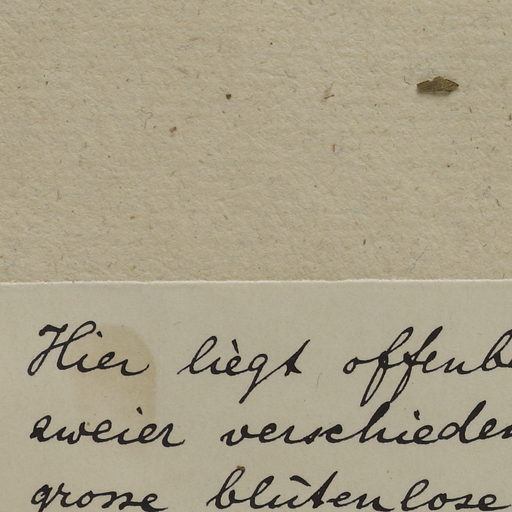 Hier liegt offenba
zweier verschieden
grosse blütenlose